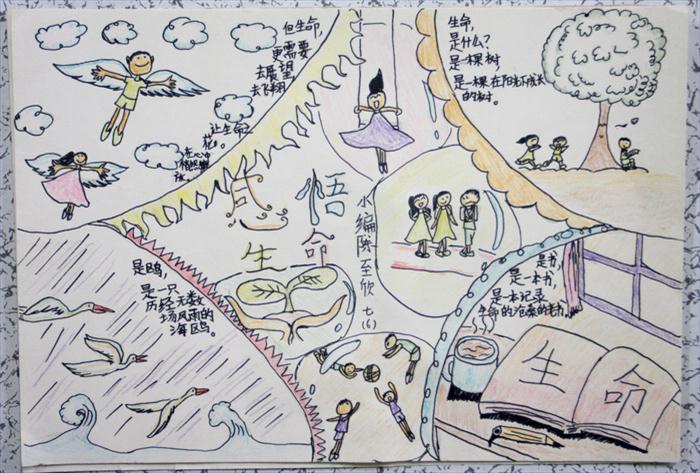 但生命，
更需要
去展望
去飞翔
让生命之
花。
在心中
生命，
是什么？
是一棵树
是一棵在阳光下成长
的树。
感悟
生命
小编陈至欣 七(6)
是鸥，
是一只
历经无数
场风雨的
海鸥。
是书，
是一本书，
是本记录
生命的沧桑的老书。
生命